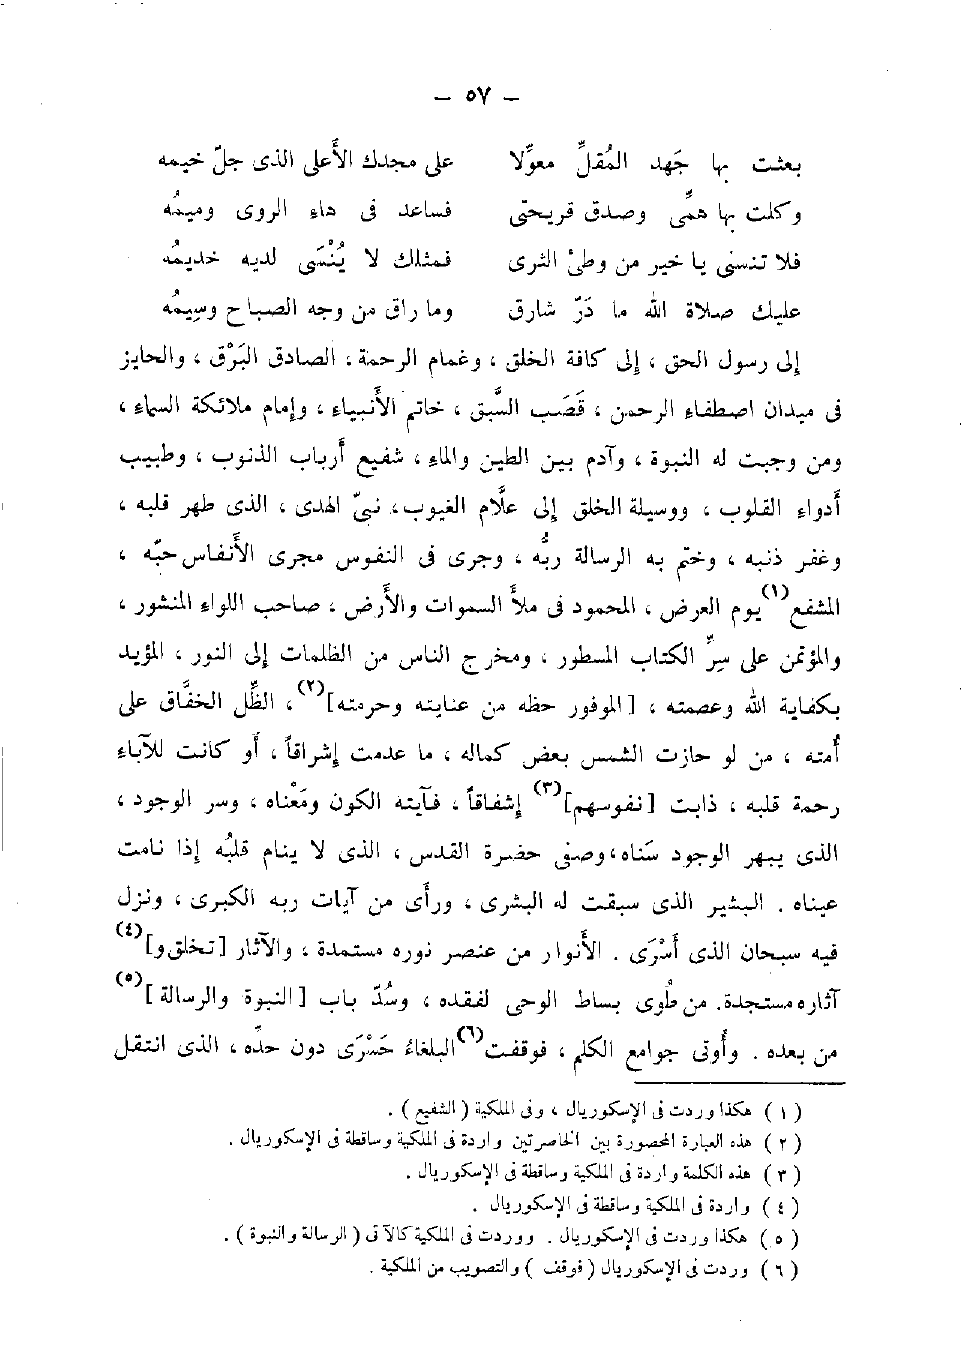 — ٥٧ —
بعثت بها جَهد المُقلِّ معوِّلا على مجدك الأَعلى الذى جلّ خيمه
وكلت بها همِّى وصدق قريحتى فساعد فى هاءِ الروى وميمُه
فلا تنسنى يا خير من وطئ الثرى فمثلك لا يُنْسَى لديه خديمُه
عليك صلاة الله ما ذَرّ شارق وما راق من وجه الصباح وسِيمُه
إلى رسول الحق ، إلى كافة الخلق ، وغمام الرحمة ، الصادق البَرْق ، والحايز
فى ميدان اصطفاءِ الرحمن ، قَصَب السَّبق ، خاتم الأَنبياء ، وإمام ملائكة السماءِ ،
ومن وجبت له النبوة ، وآدم بين الطين والماءِ ، شفيع أَرباب الذنوب ، وطبيب
أَدواء القلوب ، ووسيلة الخلق إلى علَّام الغيوب ، نبىّ الهدى ، الذى طهر قلبه ،
وغفر ذنبه ، وختم به الرسالة ربُّه ، وجرى فى النفوس مجرى الأَنفاس حبّه ،
المشفع(١) يوم العرض ، المحمود فى ملأَ السموات والأَرض ، صاحب اللواءِ المنشور ،
والمؤتمن على سِرِّ الكتاب المسطور ، ومخرج الناس من الظلمات إلى النور ، المؤيد
بكفاية الله وعصمته ، [الموفور حظه من عنايته وحرمته](٢) ، الظِّل الخفَّاق على
أُمته ، من لو حازت الشمس بعض كماله ، ما عدمت إشراقاً ، أَو كانت للآباءِ
رحمة قلبه ، ذابت [نفوسهم](٣) إشفاقاً ، فآيته الكون ومَعْناه ، وسر الوجود ،
الذى يبهر الوجود سَناه ، وصفى حضرة القدس ، الذى لا ينام قلبُه إذا نامت
عيناه . البشير الذى سبقت له البشرى ، ورأَى من آيات ربه الكبرى ، ونزل
فيه سبحان الذى أَسْرَى . الأَنوار من عنصر نوره مستمدة ، والآثار [تخلق و](٤)
آثاره مستجدة. من طُوى بساط الوحى لفقده ، وسُدّ باب [النبوة والرسالة](٥)
من بعده . وأُوتى جوامع الكلم ، فوقفت(٦) البلغاءُ حَسْرَى دون حدِّه ، الذى انتقل
(١) هكذا وردت فى الإسكوريال ، وفى الملكية (الشفيع) .
(٢) هذه العبارة المحصورة بين الخاصرتين واردة فى الملكية وساقطة فى الإسكوريال .
(٣) هذه الكلمة واردة فى الملكية وساقطة فى الإسكوريال .
(٤) واردة فى الملكية وساقطة فى الإسكوريال .
(٥) هكذا وردت فى الإسكوريال . ووردت فى الملكية كالآتى (الرسالة والنبوة) .
(٦) وردت فى الإسكوريال (فوقف) والتصويب من الملكية .